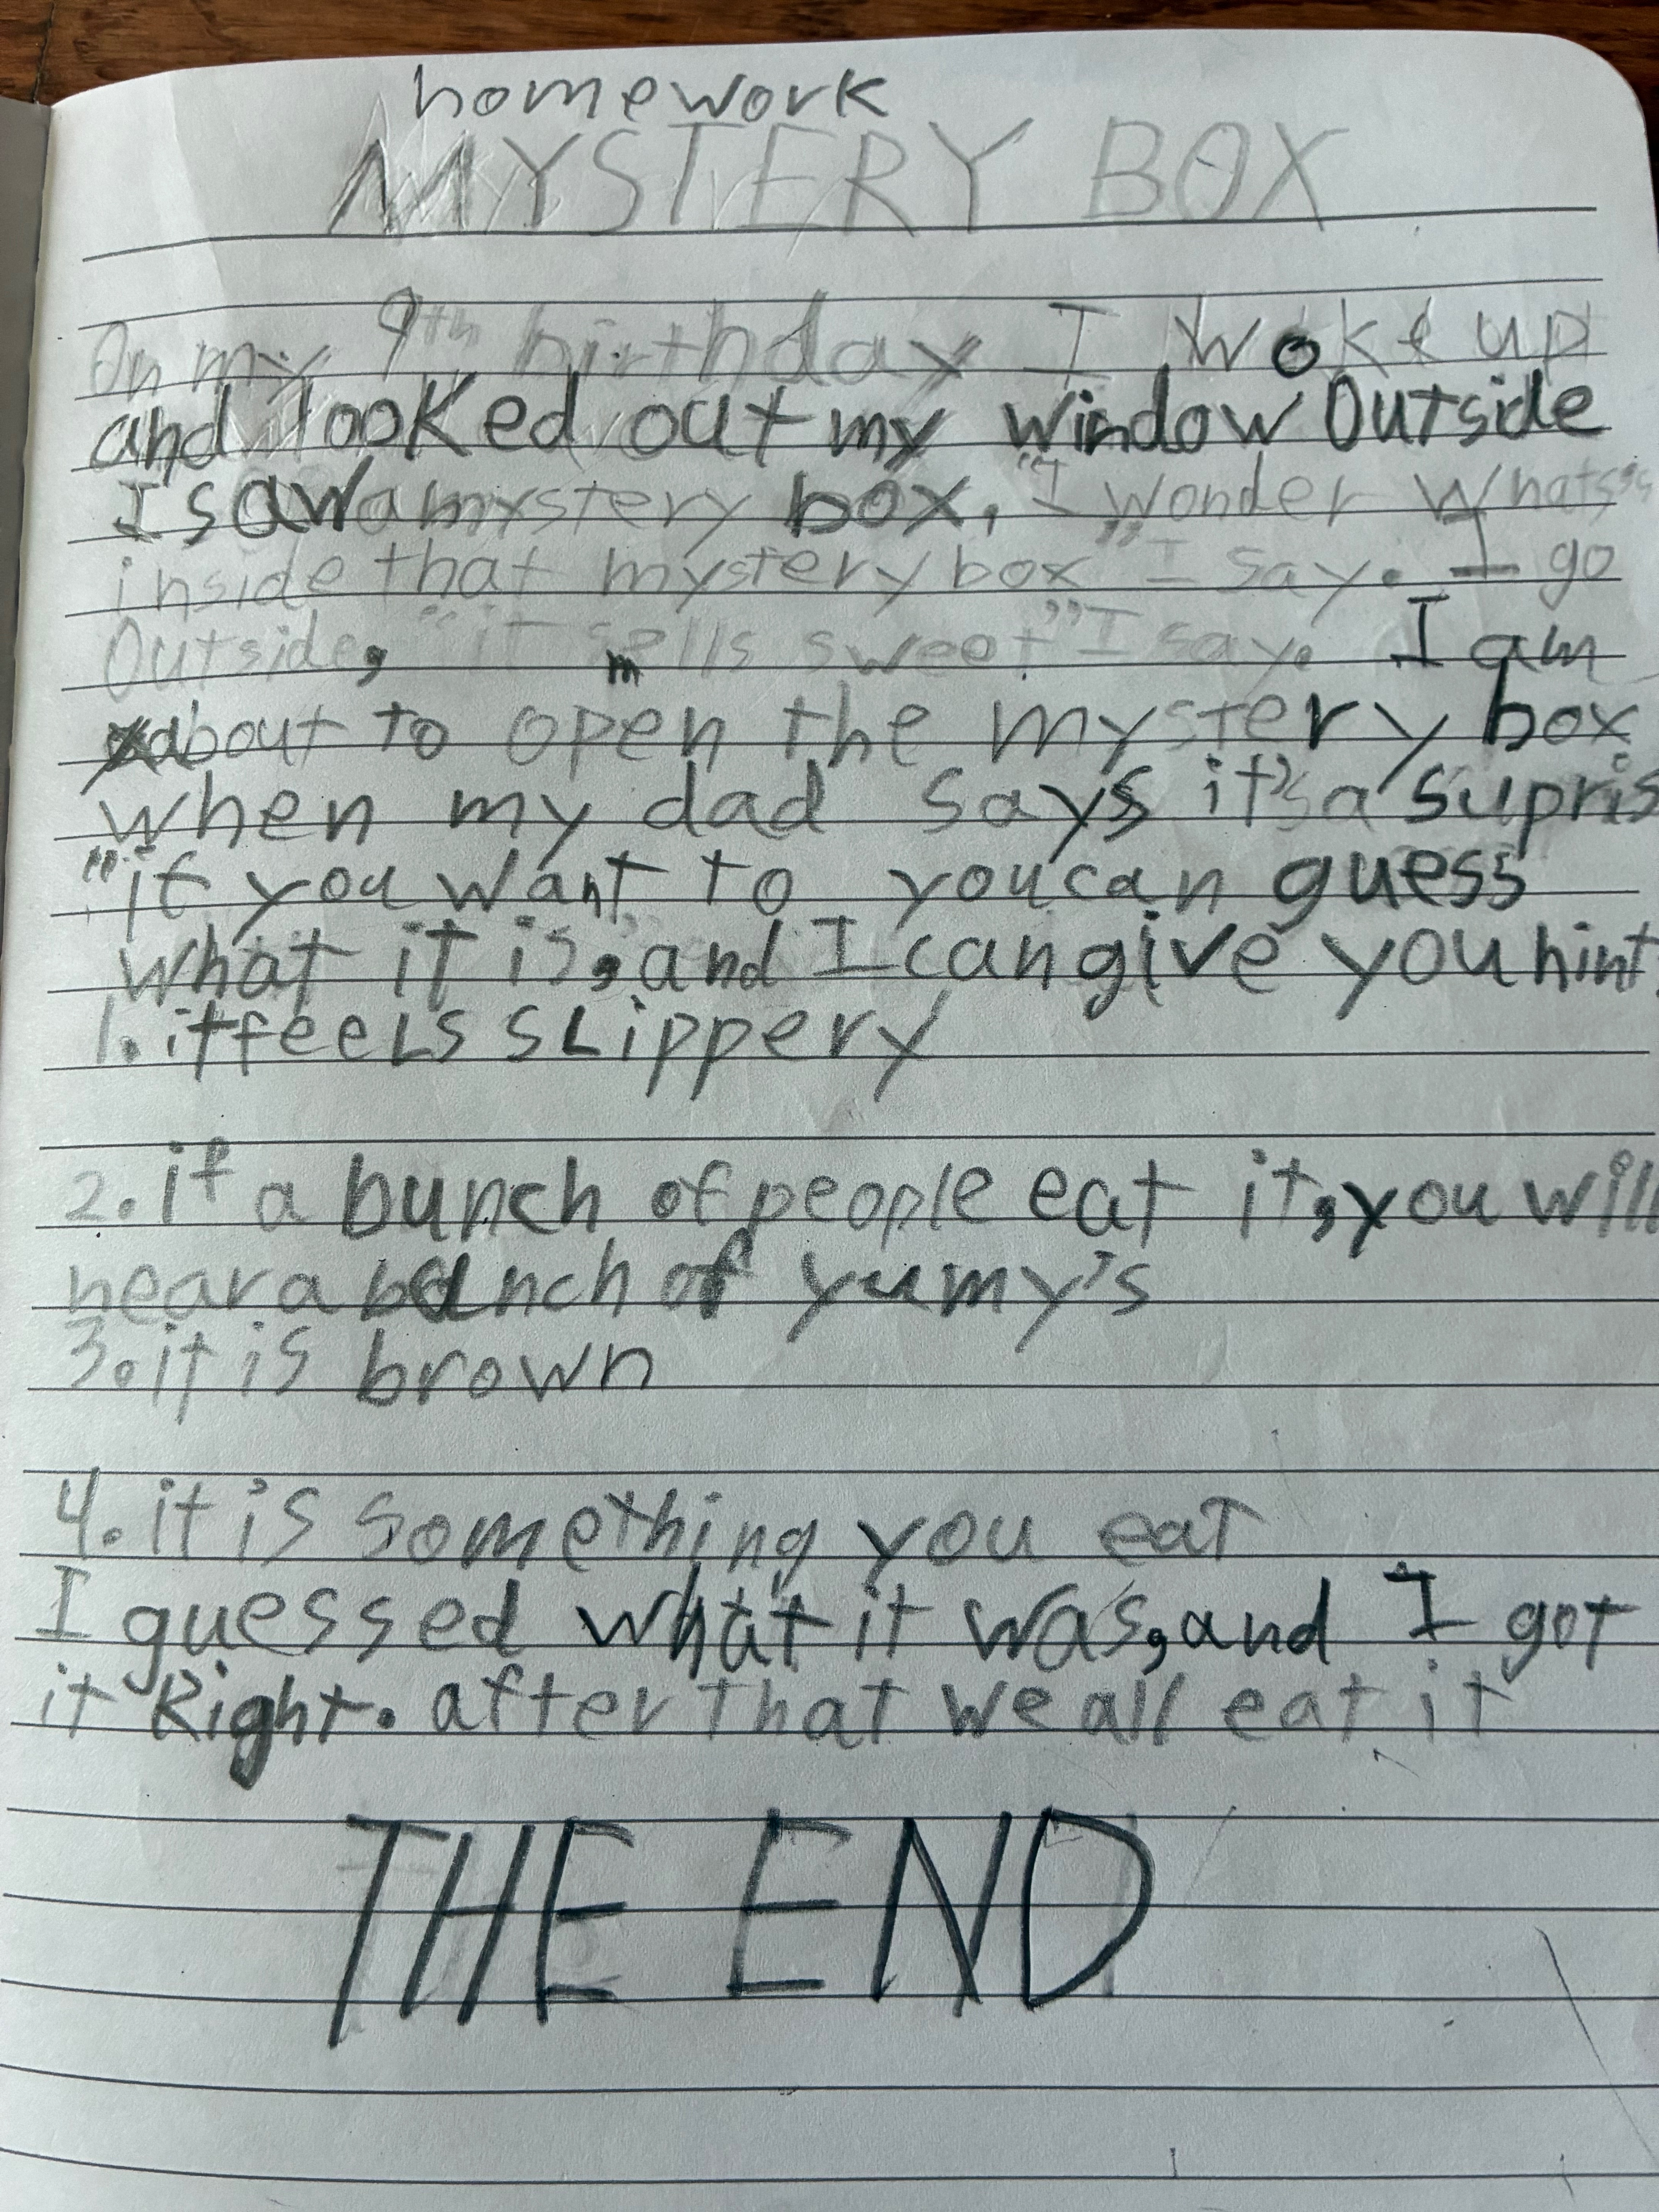 homework
MYSTERY BOX
On my 9th birthday I woke up
and looked out my window Outside
I saw a mystery box, "I wonder whats
inside that mystery box" I say. I go
Outside, "it smells sweet" I say. I am
about to open the mystery box
when my dad says it's a supris
"if you want to you can guess
what it is, and I can give you hint
1. it feels slippery
2. if a bunch of people eat it, you will
hear a bunch of yumy's
3. it is brown
4. it is something you eat
I guessed what it was, and I got
it Right. after that we all eat it
THE END